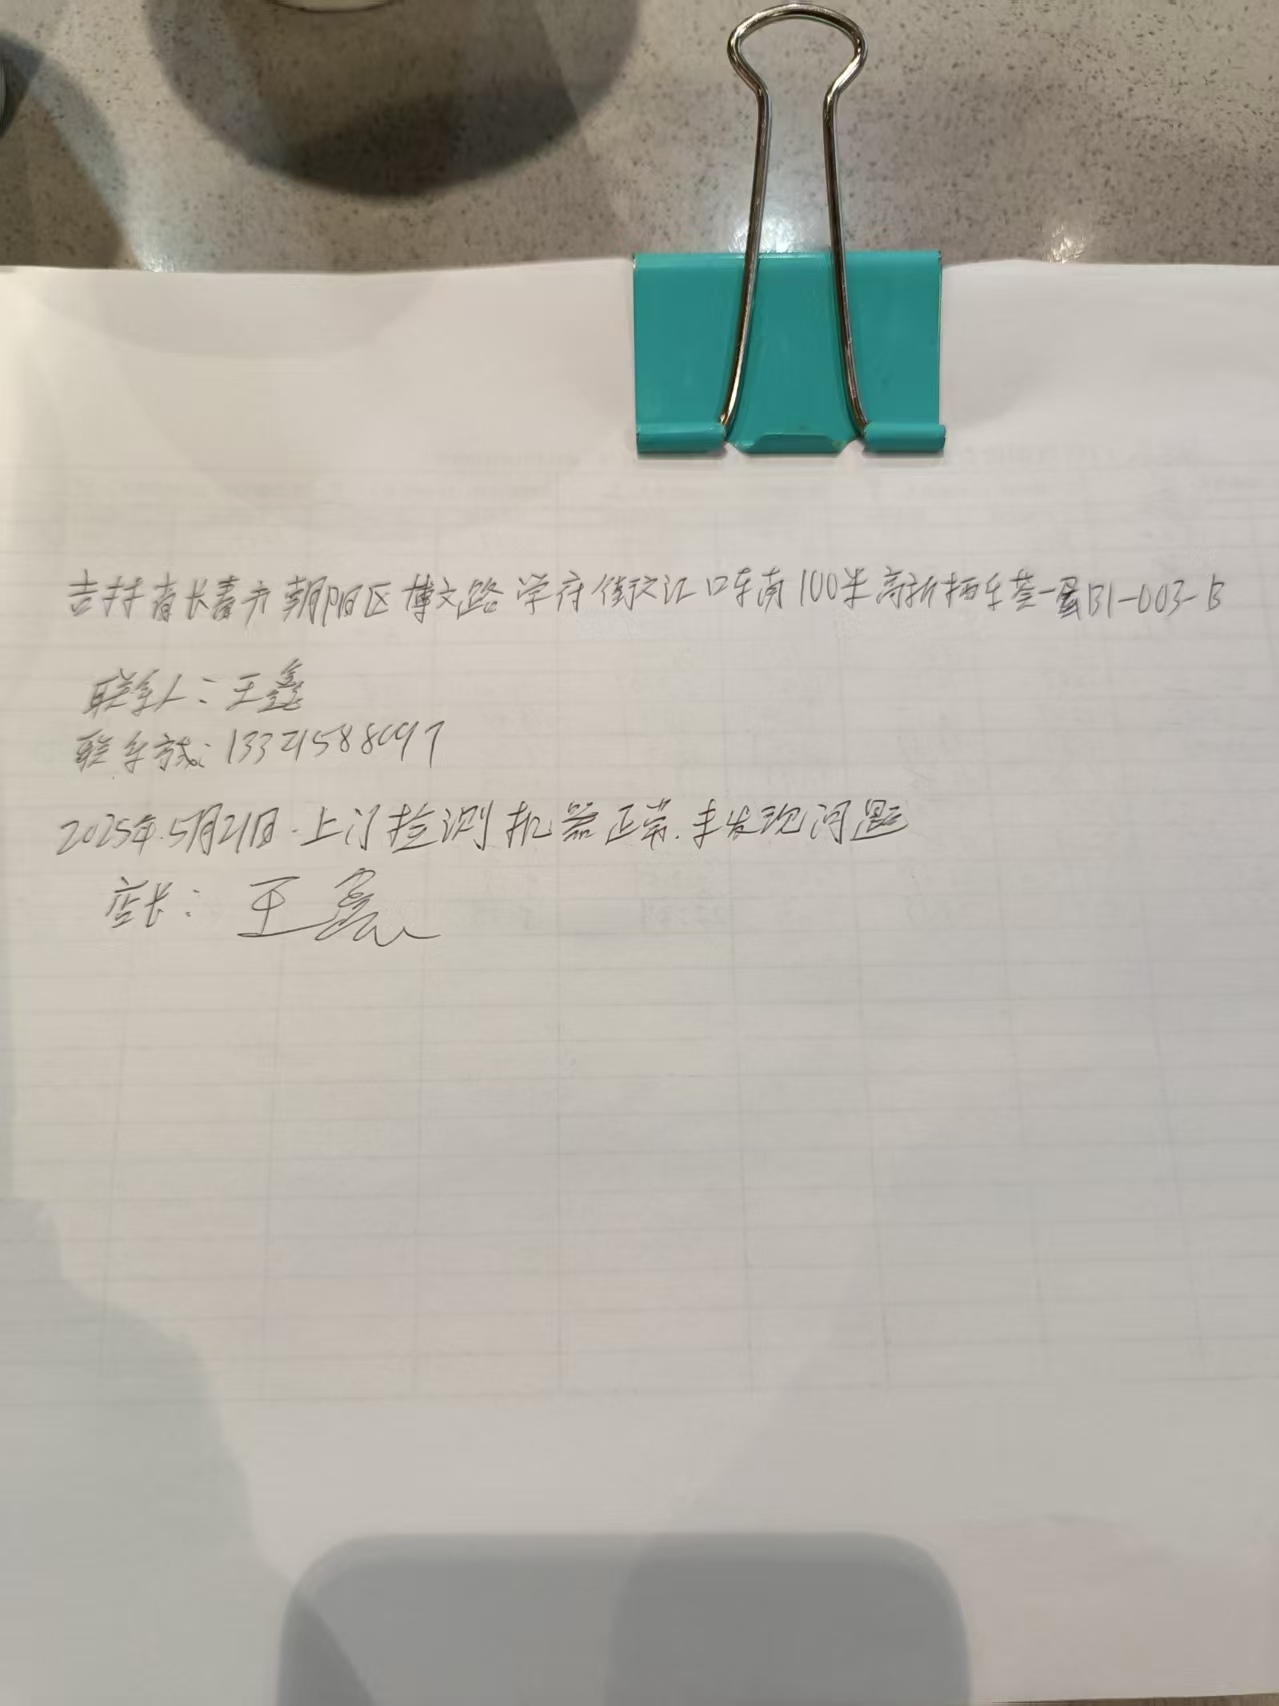 吉林省长春市朝阳区博文路学府街交汇口东南100米高新栖乐荟一层B1-003-B
联系人：王鑫
联系方式：13321588097
2025年.5月21日.上门检测机器正常.未发现问题
店长：王鑫